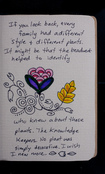 If you look back, every
family had and different
style & different plants.
It might be that the beadwork
helped to identify
who knew about these
plants. The knowledge
Keepers. No plant was
simply decorative. I wish
I knew more.